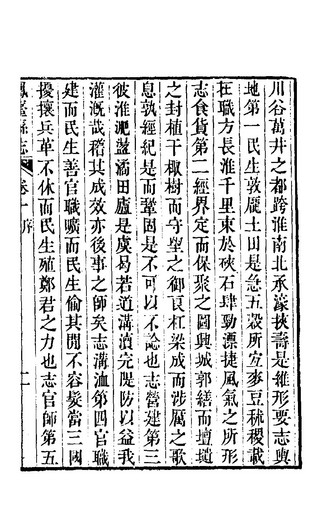 川谷萬井之都跨淮南北承濠挾壽是維形要志輿
地第一民生敦龐土田是急五穀所宜麥豆秫稷載
在職方長淮千里東於硤石肆勁漂捷風氣之所形
志食貨第二經界定而保聚之圖興城郭繕而壇壝
之封植干橶樹而守望之御
杠梁成而涉厲之歌
息孰經紀是而鞏固是不可以不諗也志營建第三
彼淮淝蓋潘田廬是虞曷若道溝瀆完隄防以益我
灌漑哉稽其成效亦後事之師矣志溝洫第四官職
建而民生善官職曠而民生偷其閒不容髮當三國
擾攘兵革不休而民生殖鄭君之力也志官師第五
鳳臺縣志
卷十序
二